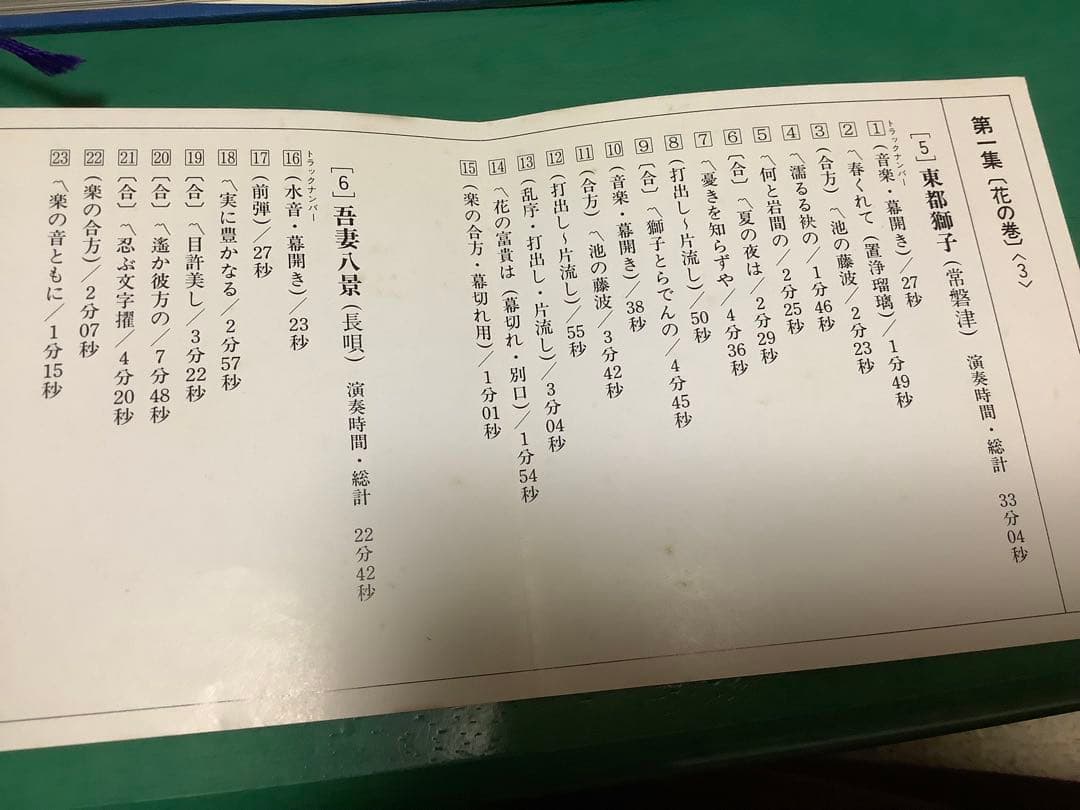 第一集〔花の巻〕〈3〉
［5］東都獅子（常磐津）　演奏時間・総計　33分04秒
トラックナンバー
1（音楽・幕開き）／27秒
2 〽春くれて（置浄瑠璃）／1分49秒
3（合方）〽池の藤波／2分23秒
4 〽濡るる袂の／1分46秒
5 〽何と岩間の／2分25秒
6〔合〕〽夏の夜は／2分29秒
7 〽憂きを知らずや／4分36秒
8（打出し～片流し）／50秒
9〔合〕〽獅子とらでんの／4分45秒
10（音楽・幕開き）／38秒
11（合方）〽池の藤波／3分42秒
12（打出し～片流し）／55秒
13（乱序・打出し・片流し）／3分04秒
14 〽花の富貴は（幕切れ・別口）／1分54秒
15（楽の合方・幕切れ用）／1分01秒
［6］吾妻八景（長唄）　演奏時間・総計　22分42秒
トラックナンバー
16（水音・幕開き）／23秒
17（前弾）／27秒
18 〽実に豊かなる／2分57秒
19〔合〕〽目許美し／3分22秒
20〔合〕〽遙か彼方の／7分48秒
21〔合〕〽忍ぶ文字摺／4分20秒
22（楽の合方）／2分07秒
23 〽楽の音ともに／1分15秒